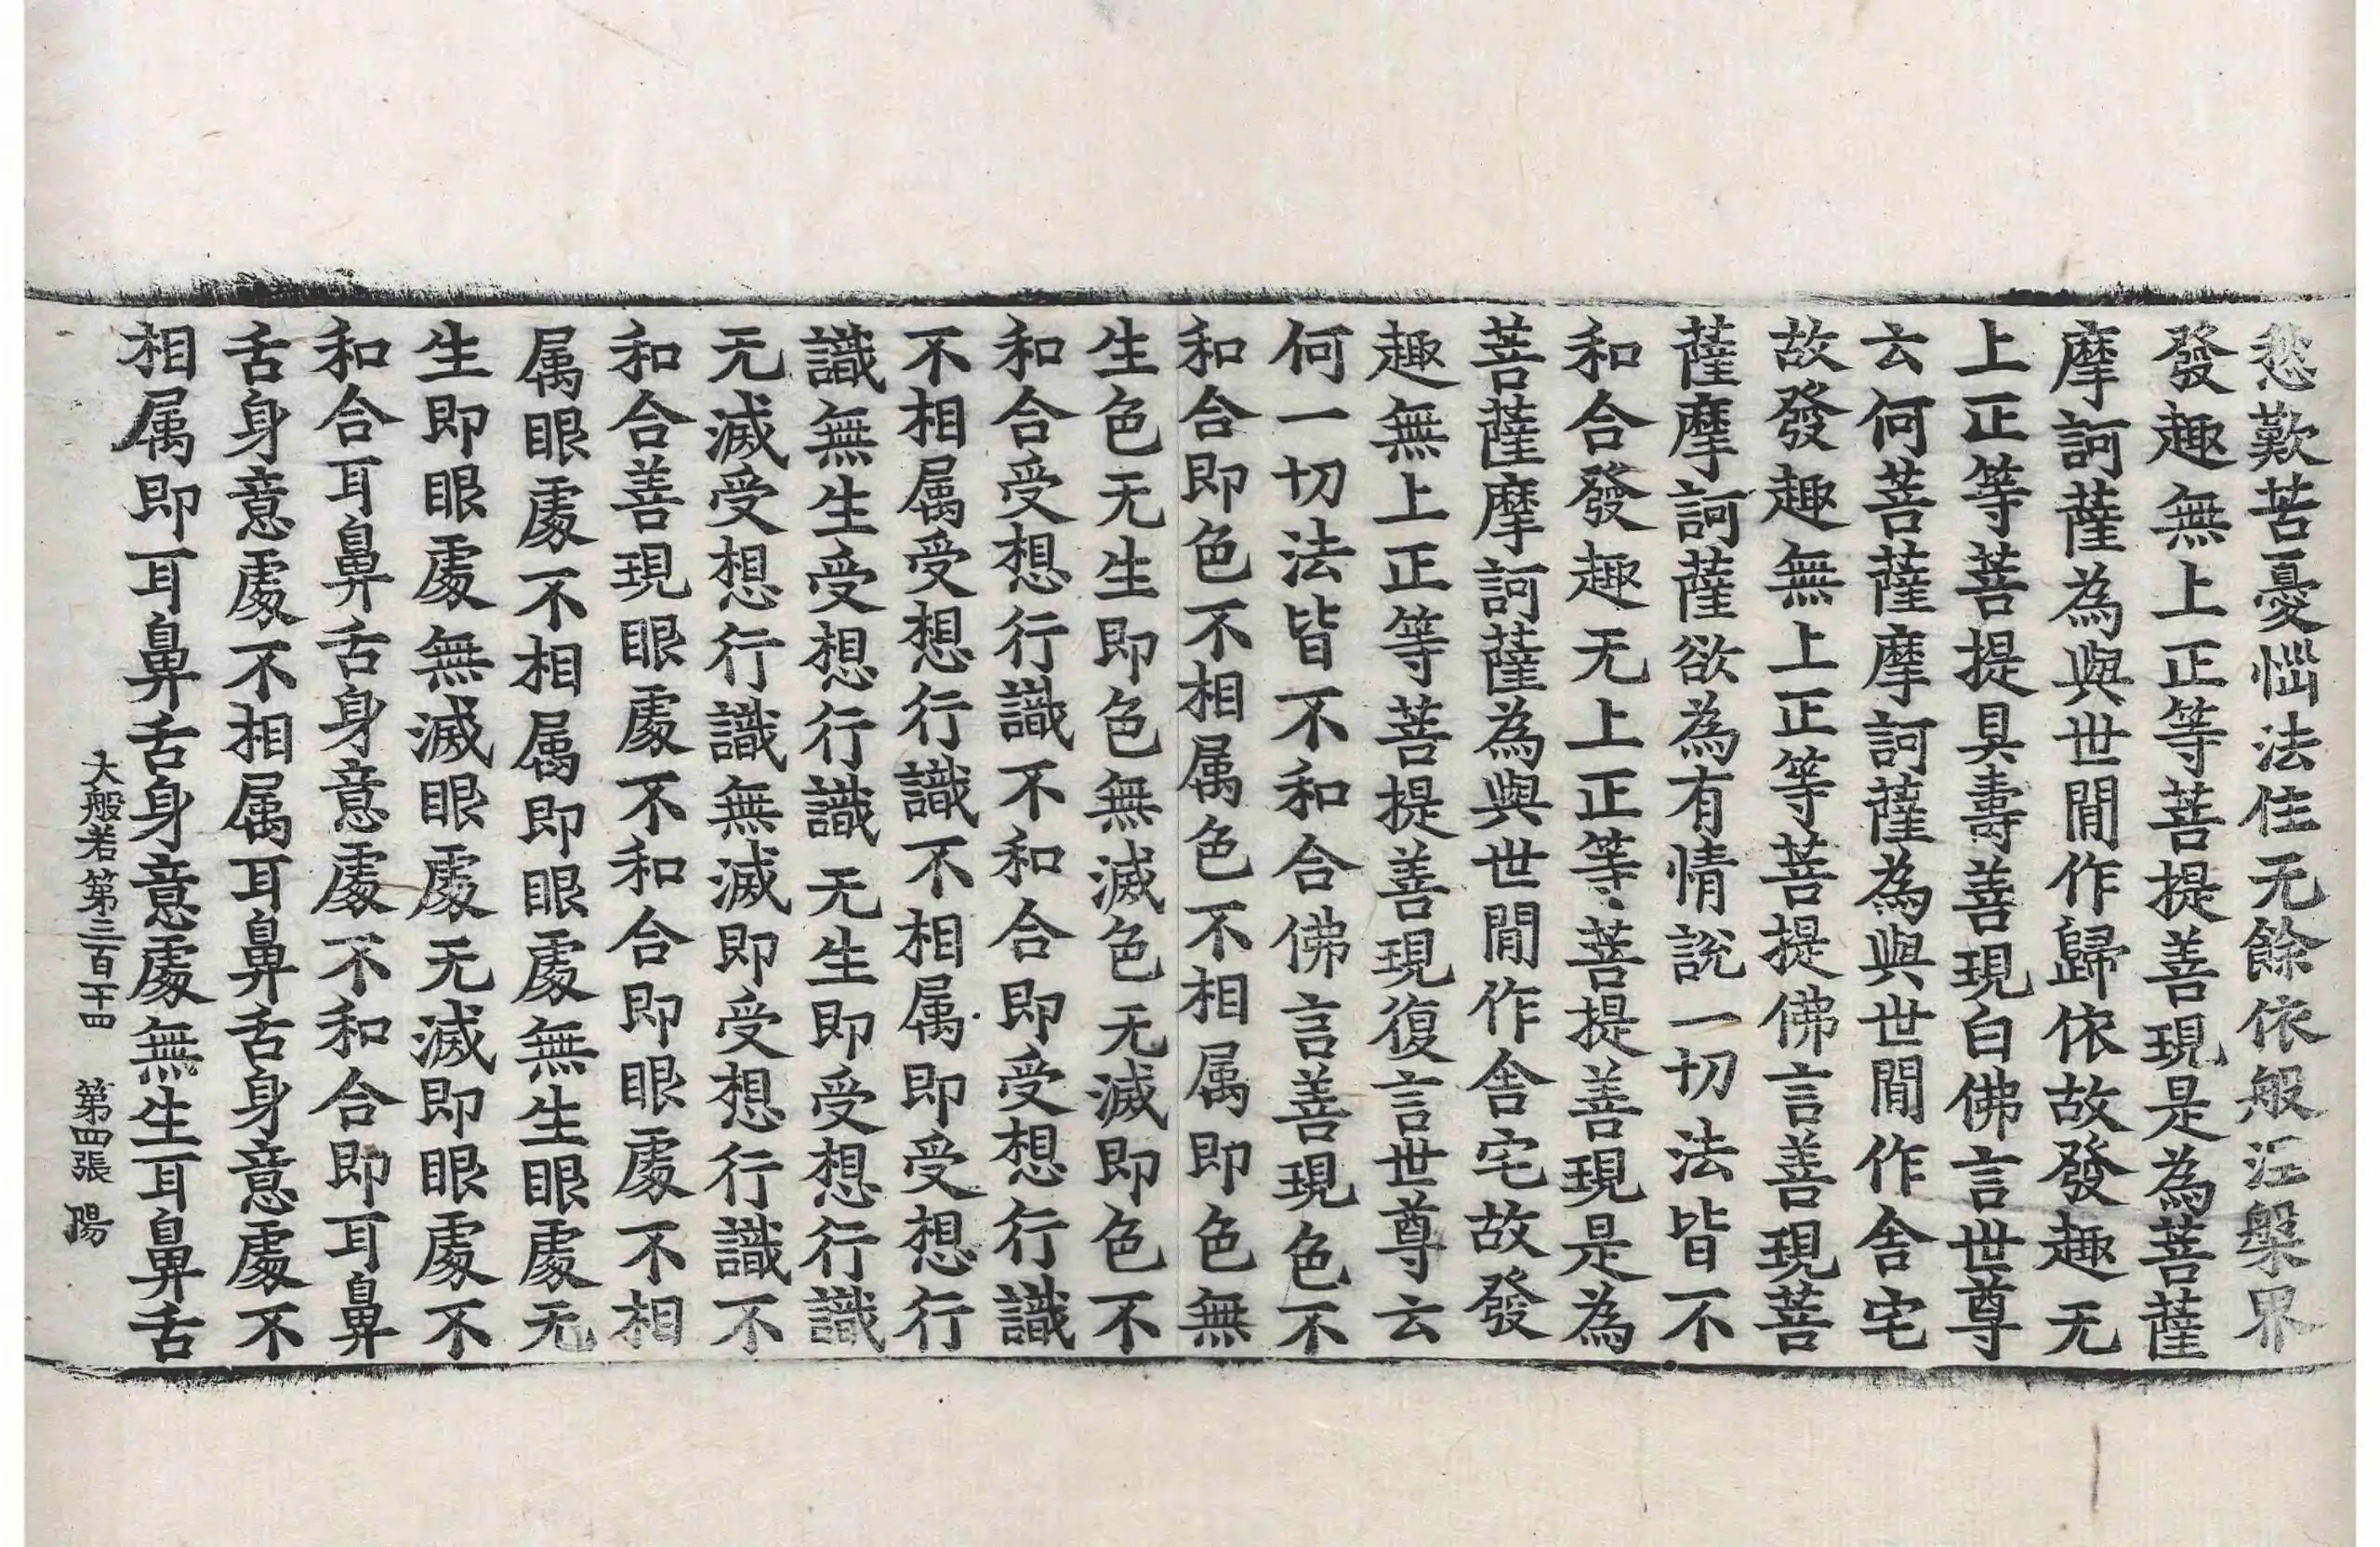 愁歎苦憂惱法住无餘依般涅槃界
發趣無上正等菩提善現是為菩薩
摩訶薩為與世閒作歸依故發趣无
上正等菩提具壽善現白佛言世尊
云何菩薩摩訶薩為與世閒作舍宅
故發趣無上正等菩提佛言善現菩
薩摩訶薩欲為有情說一切法皆不
和合發趣无上正等菩提善現是為
菩薩摩訶薩為與世閒作舍宅故發
趣無上正等菩提善現復言世尊云
何一切法皆不和合佛言善現色不
和合即色不相属色不相属即色無
生色无生即色無滅色无滅即色不
和合受想行識不和合即受想行識
不相属受想行識不相属即受想行
識無生受想行識无生即受想行識
无滅受想行識無滅即受想行識不
和合善現眼處不和合即眼處不相
属眼處不相属即眼處無生眼處无
生即眼處無滅眼處无滅即眼處不
和合耳鼻舌身意處不和合即耳鼻
舌身意處不相属耳鼻舌身意處不
相属即耳鼻舌身意處無生耳鼻舌
大般若第三百十四 第四張 陽